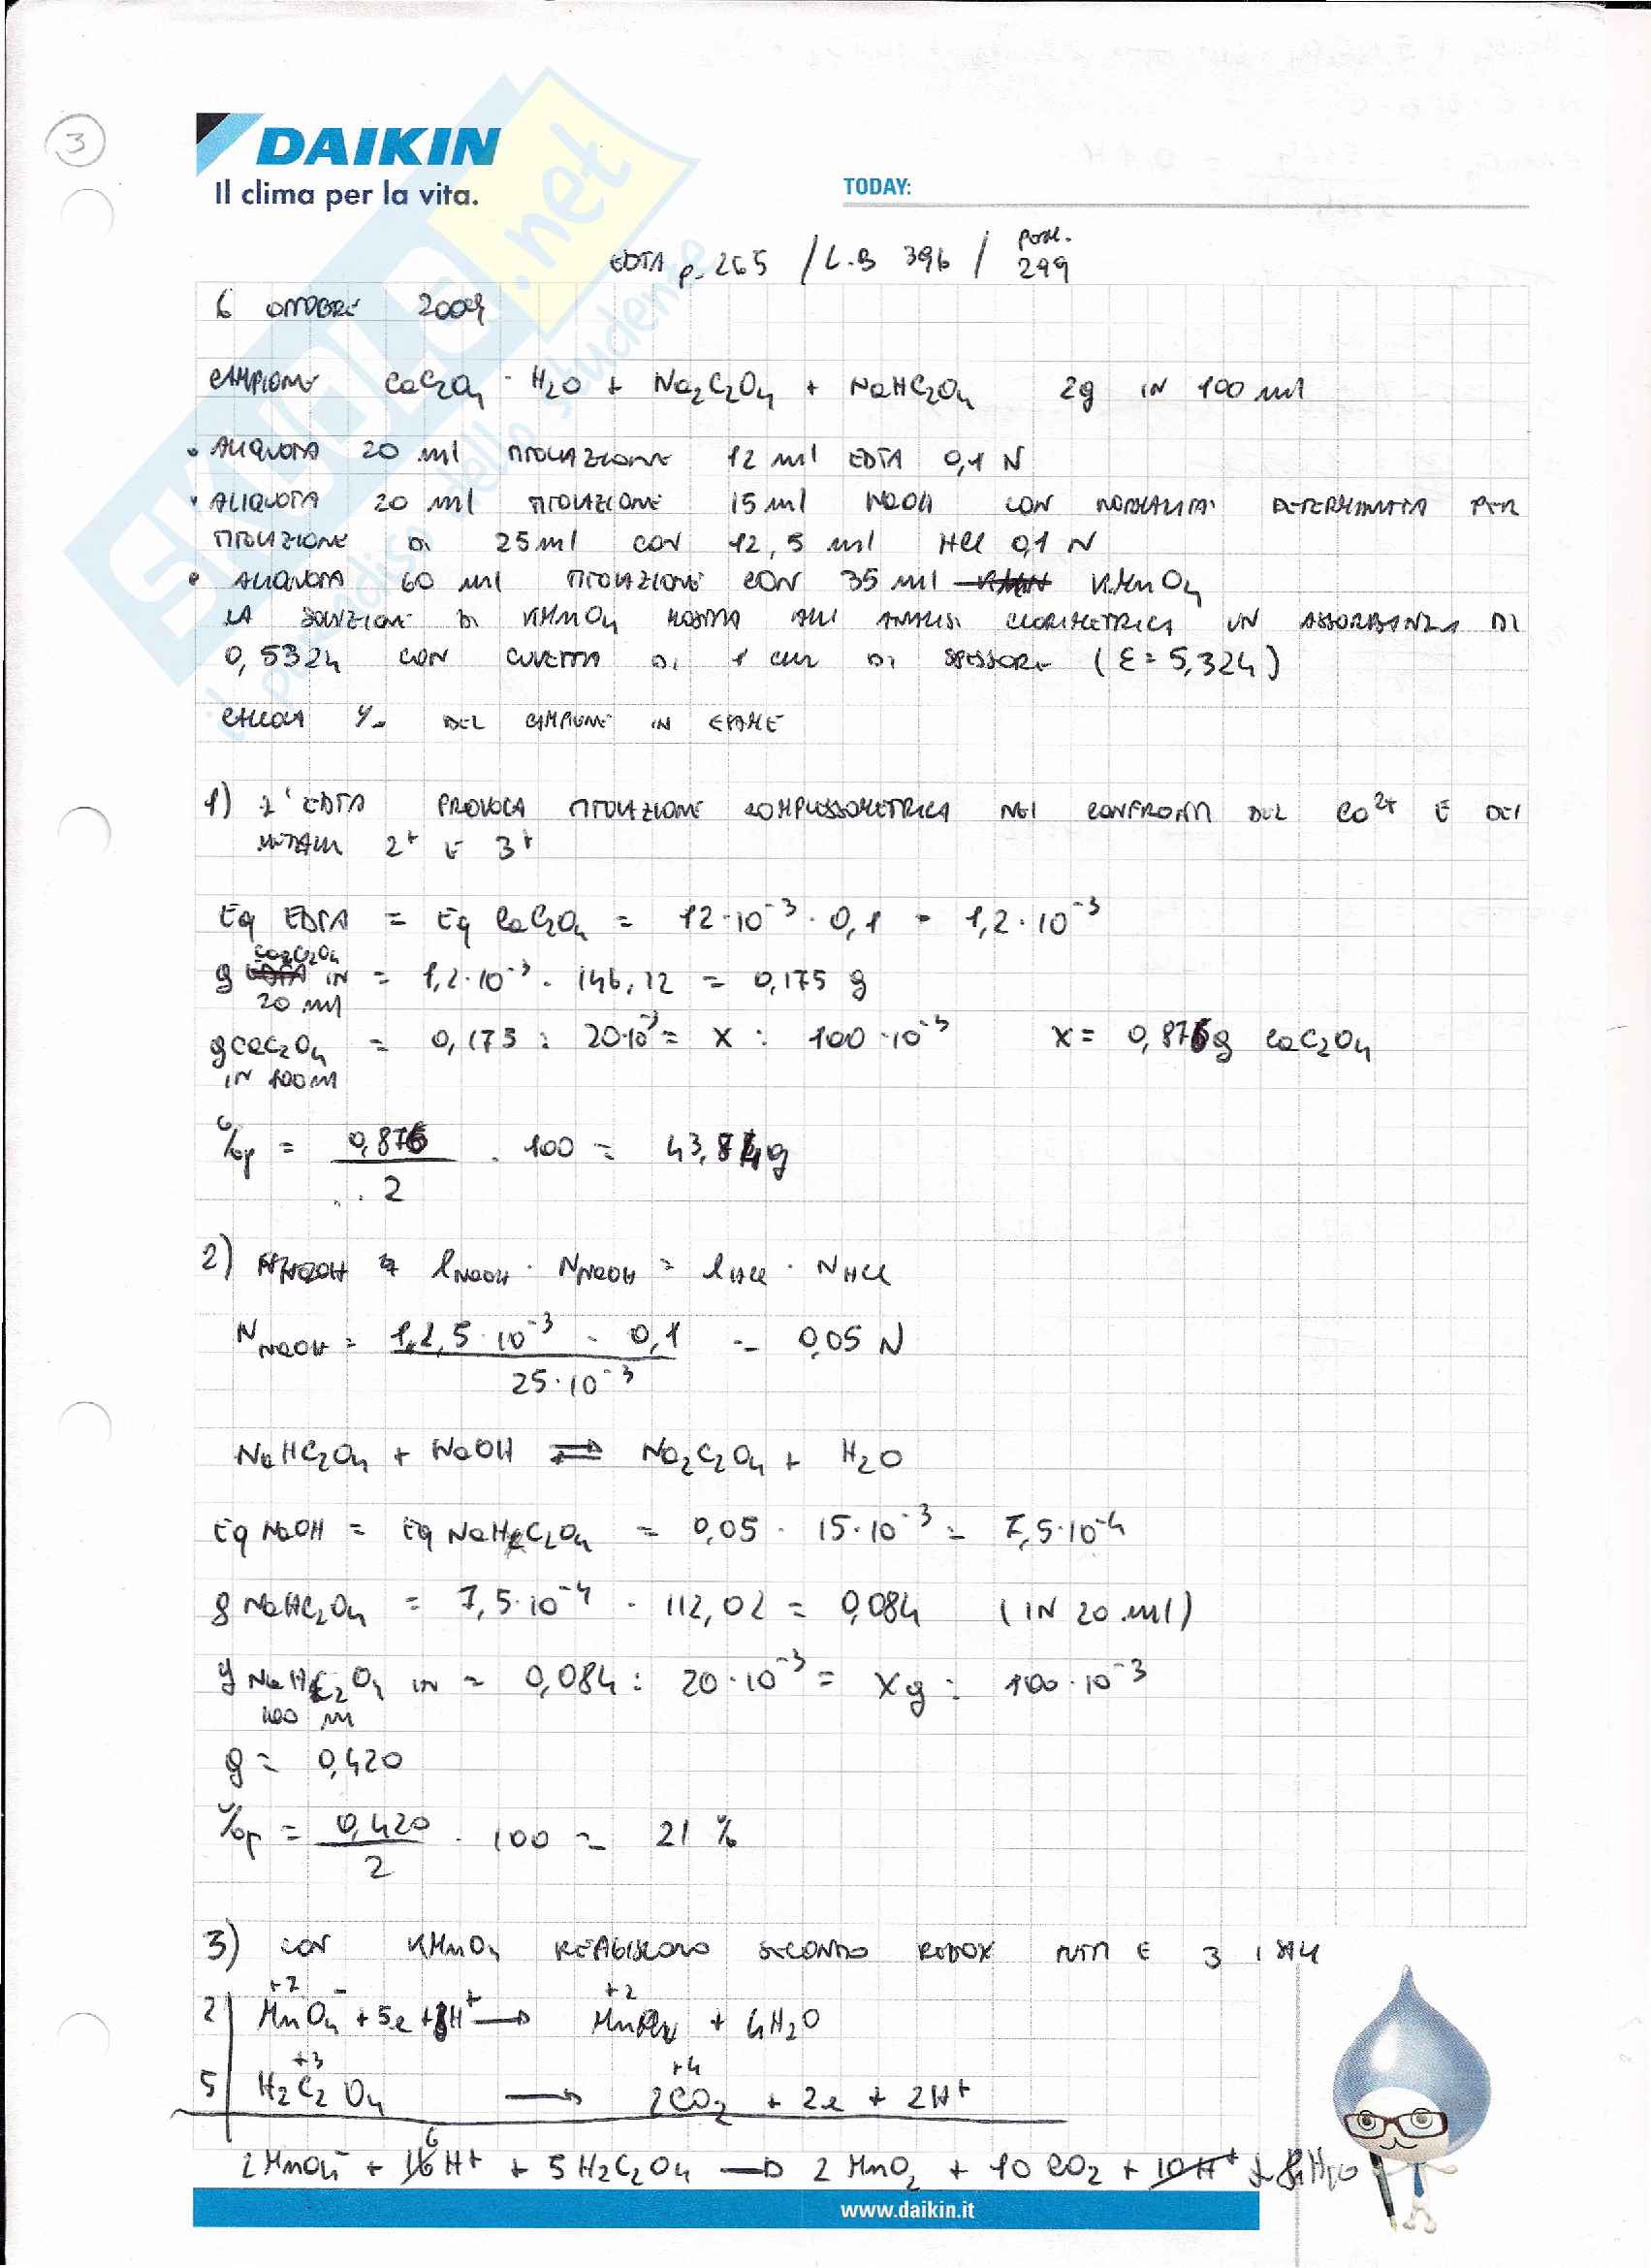 3
DAIKIN
Il clima per la vita.
TODAY:
EDTA p. 265 / L.B 396 / POSK. 299
6 OTTOBRE 2009
CAMPIONE CaC2O4 · H2O + Na2C2O4 + NaHC2O4 2g IN 100 ml
• ALIQUOTA 20 ml TITOLAZIONE 12 ml EDTA 0,1 N
• ALIQUOTA 20 ml TITOLAZIONE 15 ml NaOH CON NORMALITA' DETERMINATA PER
TITOLAZIONE DI 25 ml CON 12,5 ml HCl 0,1 N
• ALIQUOTA 60 ml TITOLAZIONE CON 35 ml KMnO4
LA SOLUZIONE DI KMnO4 MOSTRA ALL' ANALISI COLORIMETRICA UN ASSORBANZA DI
0,5324 CON CUVETTA DI 1 cm DI SPESSORE (ε = 5,324)
CALCOLA % DEL CAMPIONE IN ESAME
1) L'EDTA PROVOCA TITOLAZIONE COMPLESSOMETRICA NEI CONFRONTI DEL Ca2+ E DEI
METALLI 2+ E 3+
Eq EDTA = Eq CaC2O4 = 12·10^-3 · 0,1 = 1,2·10^-3
g CaC2O4 IN 20 ml = 1,2·10^-3 · 146,12 = 0,175 g
g CaC2O4 IN 100ml = 0,175 : 20·10^-3 = X : 100·10^-3 X = 0,876g CaC2O4
%p = 0,876 / 2 · 100 = 43,84g
2) lNaOH · NNaOH = lHCl · NHCl
NNaOH = 12,5·10^-3 · 0,1 / 25·10^-3 = 0,05 N
NaHC2O4 + NaOH ⇌ Na2C2O4 + H2O
Eq NaOH = Eq NaHC2O4 = 0,05 · 15·10^-3 = 7,5·10^-4
g NaHC2O4 = 7,5·10^-4 · 112,02 = 0,084 (IN 20 ml)
g NaHC2O4 IN 100 ml = 0,084 : 20·10^-3 = Xg : 100·10^-3
g = 0,420
%p = 0,420 / 2 · 100 = 21 %
3) CON KMnO4 REAGISCONO SECONDO REDOX TUTTI E 3 I SALI
2 | +7 MnO4^- + 5e + 8H+ → +2 Mn + 4H2O
5 | +3 H2C2O4 → +4 2CO2 + 2e + 2H+
2MnO4^- + 6H+ + 5H2C2O4 → 2MnO2 + 10CO2 + 10H+ + 8H2O
www.daikin.it
SKUOLA.net
il paradiso dello studente